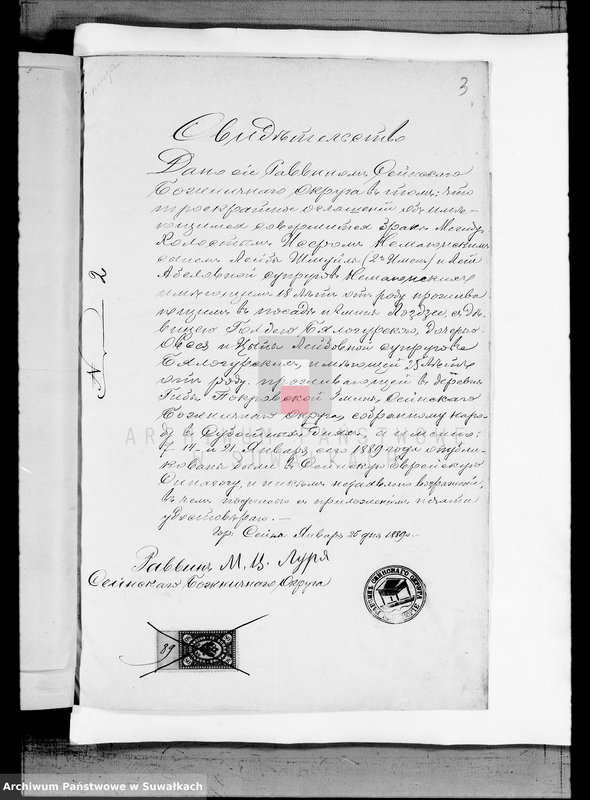 3
Свидѣтельство
Дано сіе Раввиномъ Сейнскаго
Божничнаго Округа въ томъ: что
троекратное оглашеніе объ имѣ-
ющимся совершится бракѣ между
Холостымъ
сыномъ Лейбы Шмуйлы (2хъ имен) и Леи
Абеловной супруговъ
имѣющимъ 18 лѣтъ отъ роду прожива
ющимъ въ посадѣ и гминѣ Лоздзее съ дѣ-
вицею Голдею Бялогурской, Дочерью
Овсея и Цыпы Лейбовной супруговъ
Бялогурскихъ, имѣющей 25 лѣтъ
отъ роду, проживающей въ деревнѣ
Гибы Покровской Гмины, Сейнскаго
Божничнаго Округа, собранному наро-
ду въ Субботныхъ Дняхъ а именно:
7- 14- и 21 Января сего 1889 года опубли-
кованы были въ Сейнскую Еврейскую
Синагогу, и никѣмъ незаявлено возраженій,
въ чемъ подписью съ приложеніемъ печати
удостовѣряю. —
Гор. Сейны Января 25 дня 1889 г.
Раввинъ М. Ц. Луря
Сейнскаго Божничнаго Округа
N 2
89
ARCHIWUM PAŃSTWOWE
W SUWAŁKACH
Archiwum Państwowe w Suwałkach